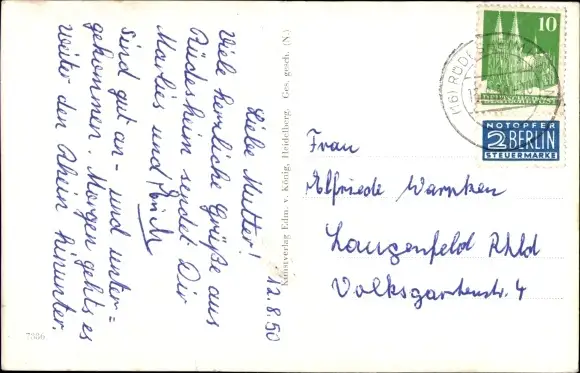 12.8.50
Liebe Mutter!
Viele herzliche Grüße aus
Rüdesheim sendet Dir
Marlies und Erich
Sind gut an= und unter=
gekommen. Morgen geht's es
weiter den Rhein hinunter.
7886
Kunstverlag Edm. v. König, Heidelberg. Ges. gesch. (N.)
10
(16) RÜDESHEIM
NOTOPFER
2 BERLIN
STEUERMARKE
Frau
Elfriede Warnken
Langenfeld Rhld
Volksgartenstr. 4